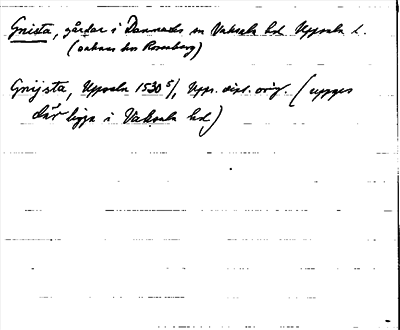 Gnista, gårdar i Danmarks sn Vaksala hd Uppsala l.
(saknas hos Rosenberg)
Gnijsta, Uppsala 1530 5/, Upps. dipl. orig. (uppges
där ligga i Vaksala hd)